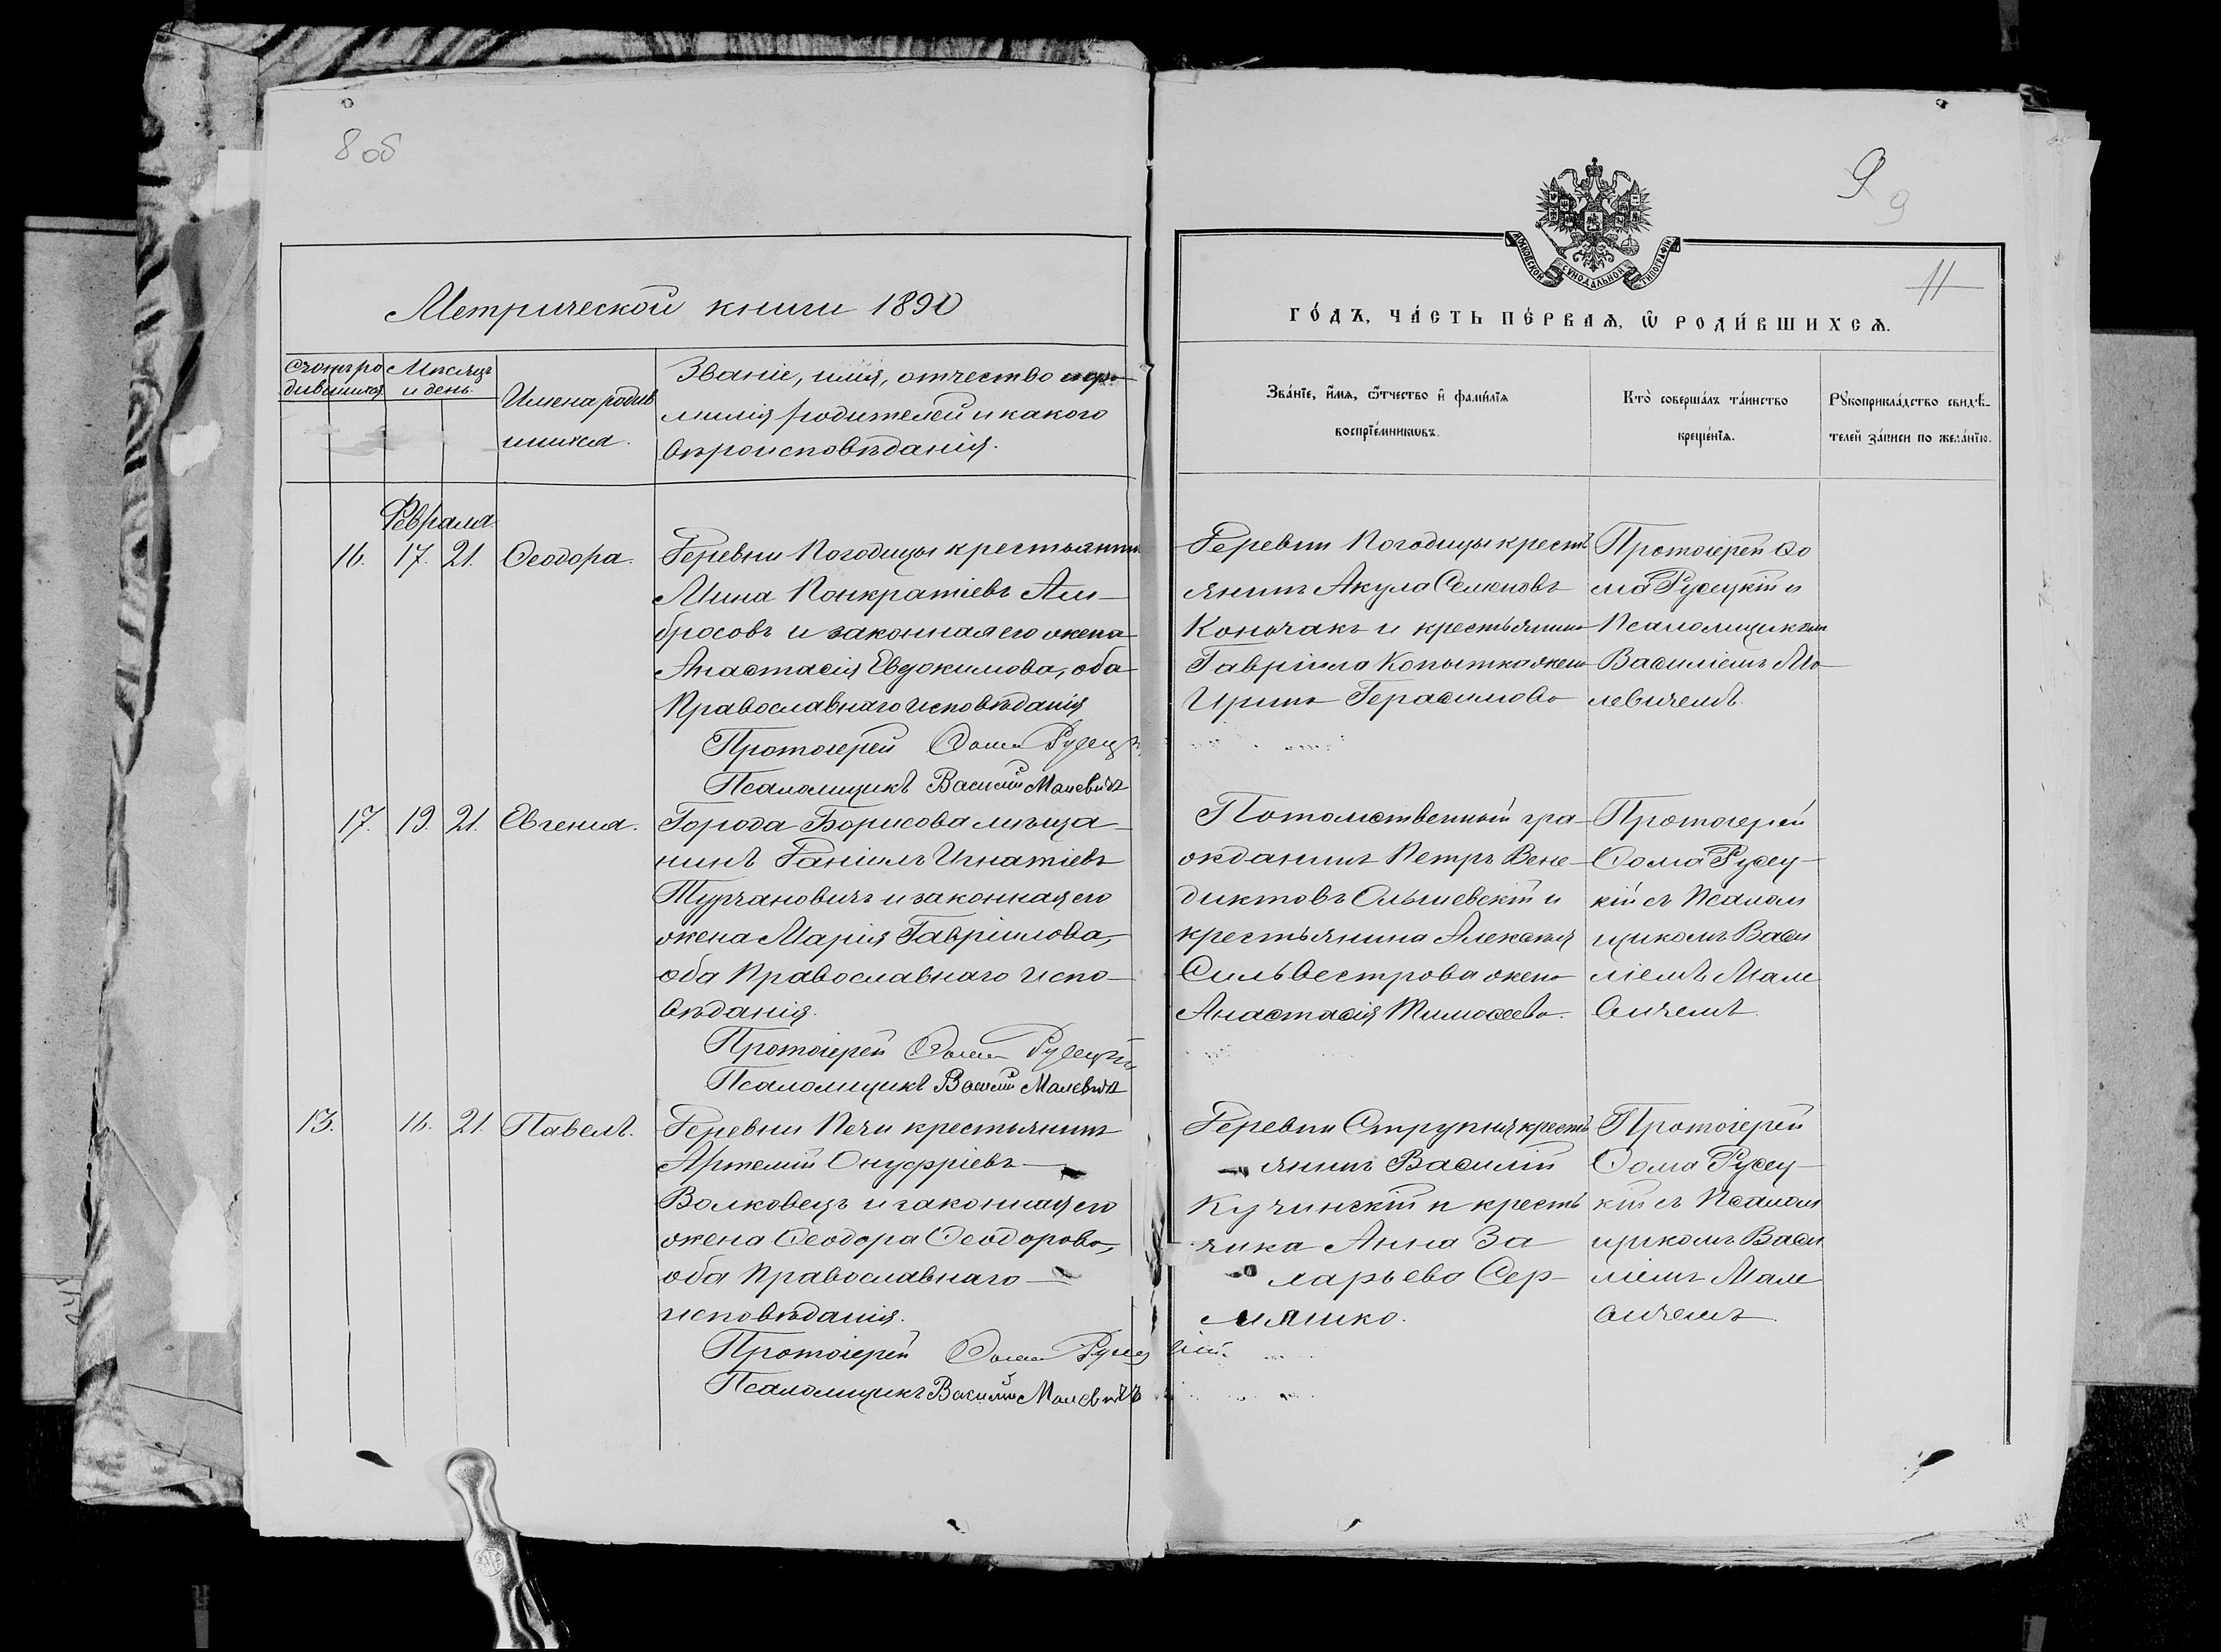 8 об
Метрической книги 1890
Счетъ ро
дившихся
Мѣсяцъ
и день
Имена родив
шихся.
Званіе, имя, отчество и фа
милія родителей и какого
вѣроисповѣданія.
Февраля
16. 17. 21. Ѳеодора.
Деревни Погодицы крестьянинъ
Мина Панкратіевъ Ам–
бросовъ и законная его жена
Анастасія Евдокимова, оба
Православнаго исповѣданія
Протоіерей Ѳома Русецкій
Псаломщикъ Василій Малевичъ
17. 19. 21. Евгенія.
Города Борисова мѣща–
нинъ Даніилъ Игнатіевъ
Турчановичъ и законная его
жена Марія Гавріилова,
оба Православнаго испо–
вѣданія.
Протоіерей Ѳома Русецкій
Псаломщикъ Василій Малевичъ
13. 16. 21. Павелъ.
Деревни Печи крестьянинъ
Артемій Онуфріевъ
Волковецъ и законная его
жена Ѳеодора Ѳеодорова,
оба Православнаго
исповѣданія.
Протоіерей Ѳома Русецкій
Псаломщикъ Василій Малевичъ
9
9
11
МОСКОВСКОЙ СѴНОДАЛЬНОЙ ТИПОГРАФІИ
ГО́ДЪ, ЧА́СТЬ ПЕ́РВАѦ, Ѽ РОДИ́ВШИХСѦ.
Зва́нїе, и҆́мѧ, ѻ҆́тчество и҆ фами́лїѧ
воспрїе́мникѡвъ.
Кто̀ соверша́лъ та́инство
креще́нїѧ.
Рꙋкоприкла́дство свидѣ́–
телей за́писи по жела́нїю.
Деревни Погодицы кресть
янинъ Акула Семеновъ
Кончакъ и крестьянина
Гавріила Копытка жена
Ирина Герасимова
Протоіерей Ѳо
ма Русецкій и
Псаломщикомъ
Василіемъ Ма–
левичемъ.
Потомственный гра–
жданинъ Петръ Вене–
диктовъ Ольшевскій и
крестьянина Алексѣя
Сильвестрова жена
Анастасія Тимоѳеева.
Протоіерей
Ѳома Русец–
кій съ Псалом
щикомъ Васи
ліемъ Мале
вичемъ.
Деревни Струпня кресть
янинъ Василій
Кучинскій и кресть
янка Анна За
ларьева Сер–
мяшко.
Протоіерей
Ѳома Русец–
кій съ Псалом
щикомъ Васи
ліемъ Мале
вичемъ.